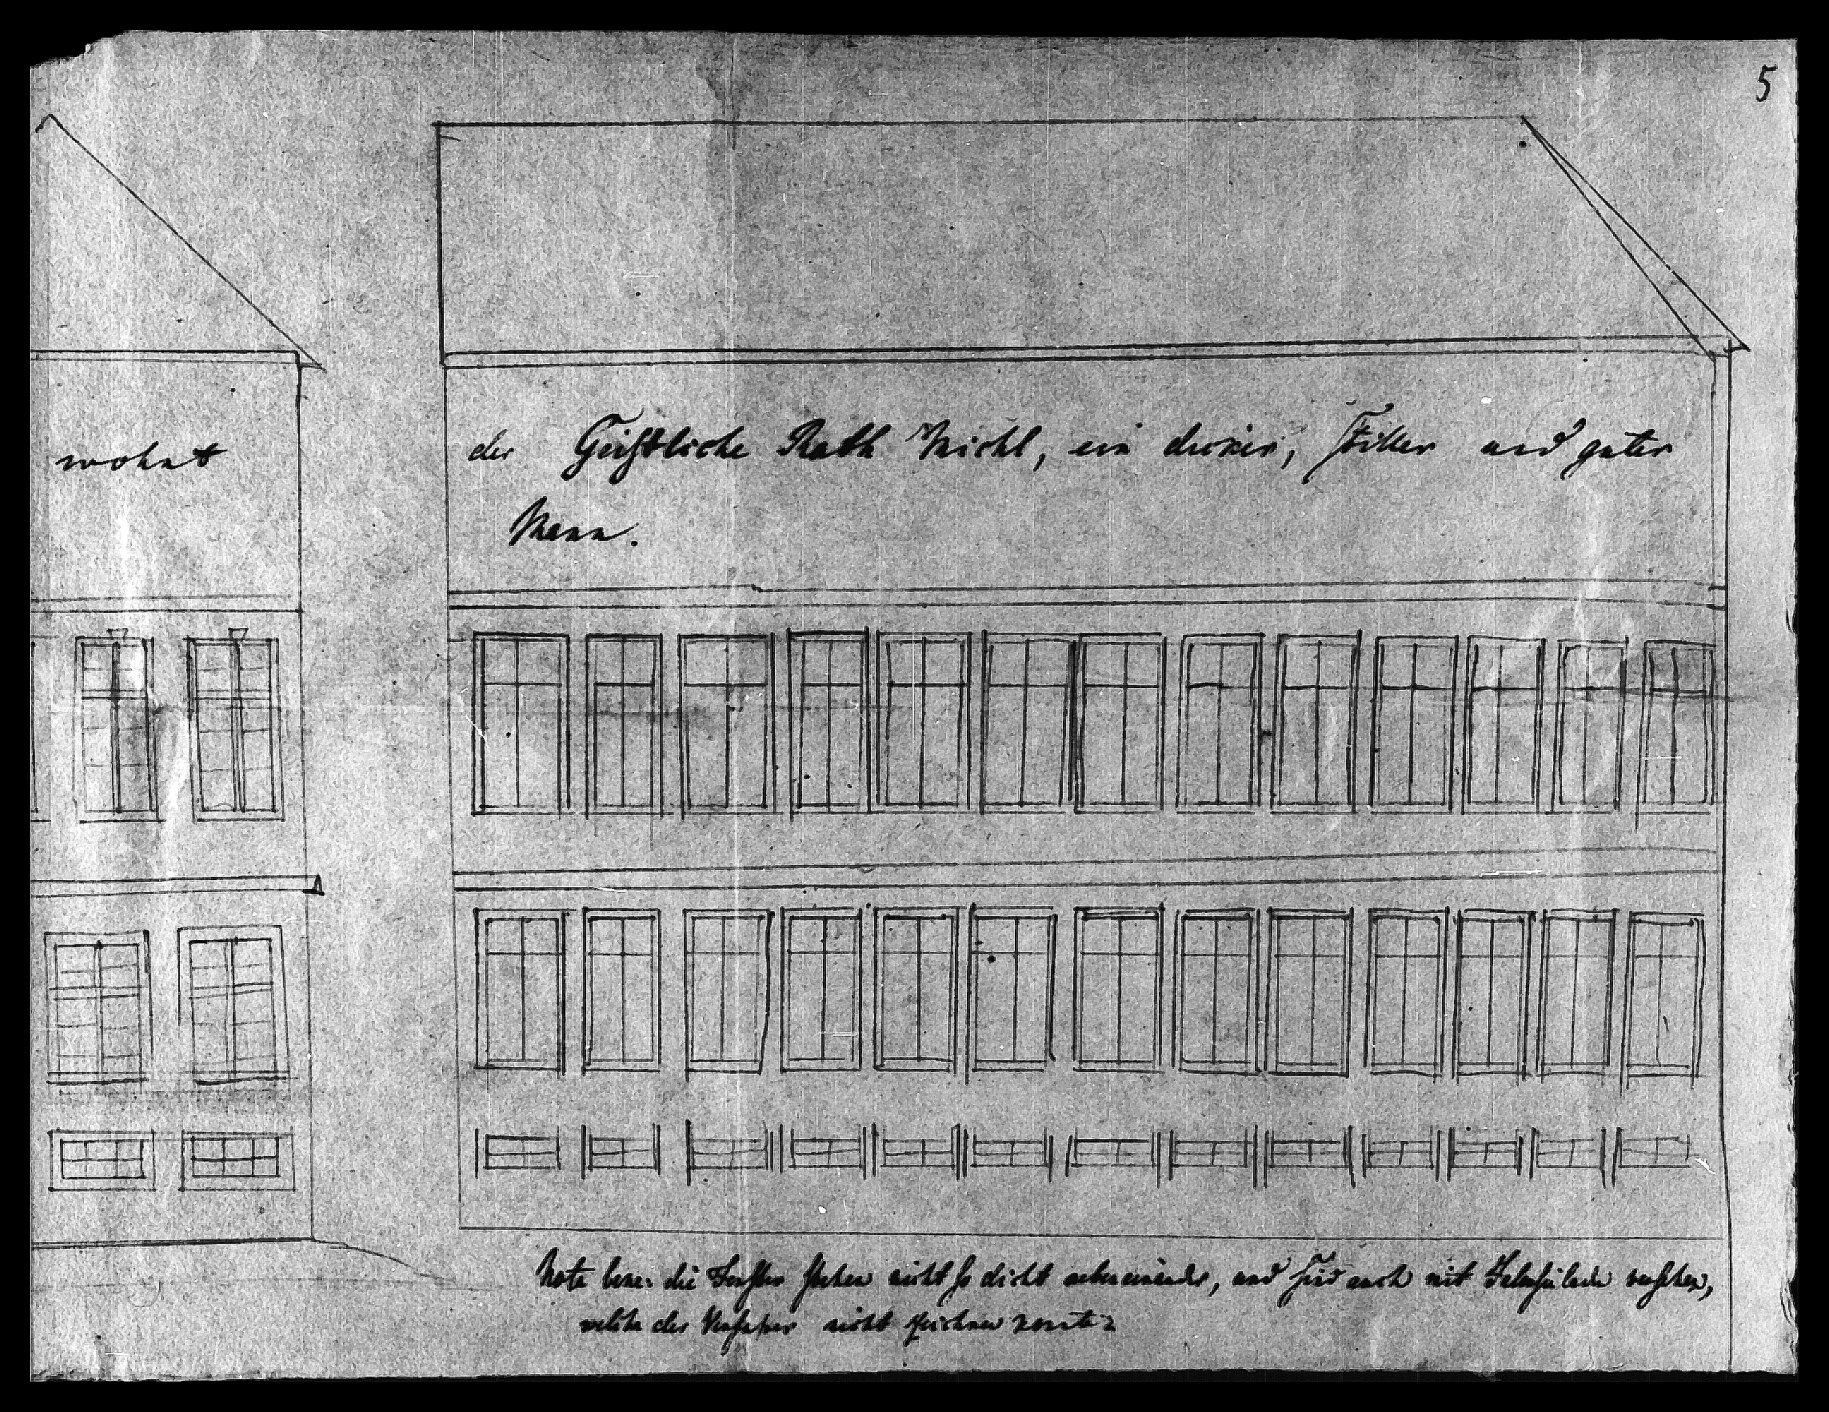 5
wohnt
der Geistliche Rath Michl, ein dicker, stiller und guter
Mann.
Nota bene: die Fenster stehen nicht so dicht nebeneinander, und sind auch mit versehen,
welche der Verfasser nicht zeichnen konnte